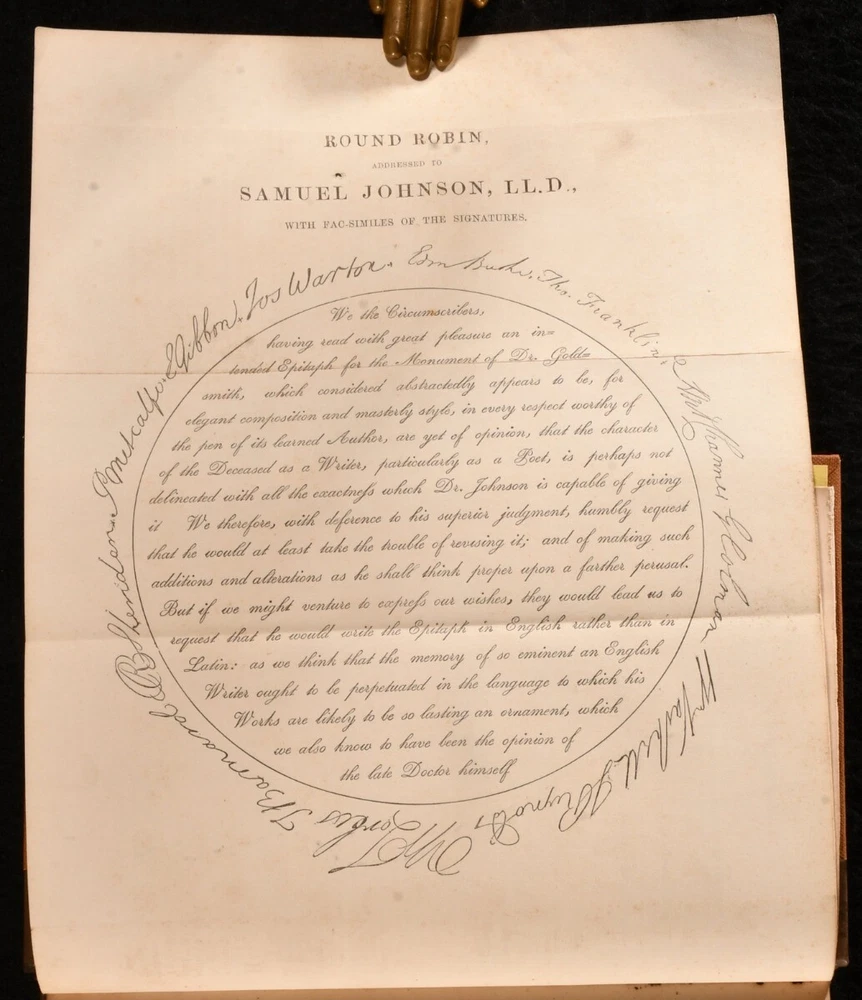 ROUND ROBIN,
ADDRESSED TO
SAMUEL JOHNSON, LL.D.,
WITH FAC-SIMILES OF THE SIGNATURES.
We the Circumscribers,
having read with great pleasure an in=
tended Epitaph for the Monument of Dr. Gold=
smith, which considered abstractedly appears to be, for
elegant composition and masterly style, in every respect worthy of
the pen of its learned Author, are yet of opinion, that the character
of the Deceased as a Writer, particularly as a Poet, is perhaps not
delineated with all the exactness which Dr. Johnson is capable of giving
it We therefore, with deference to his superior judgment, humbly request
that he would at least take the trouble of revising it; and of making such
additions and alterations as he shall think proper upon a farther perusal.
But if we might venture to express our wishes, they would lead us to
request that he would write the Epitaph in English rather than in
Latin: as we think that the memory of so eminent an English
Writer ought to be perpetuated in the language to which his
Works are likely to be so lasting an ornament, which
we also know to have been the opinion of
the late Doctor himself
Jos Warton.
Edm Burke.
Tho. Franklin,
G Colman
J Reynolds,
W Forbes
T Barnard
R B Sheridan
P Metcalfe
E Gibbon.